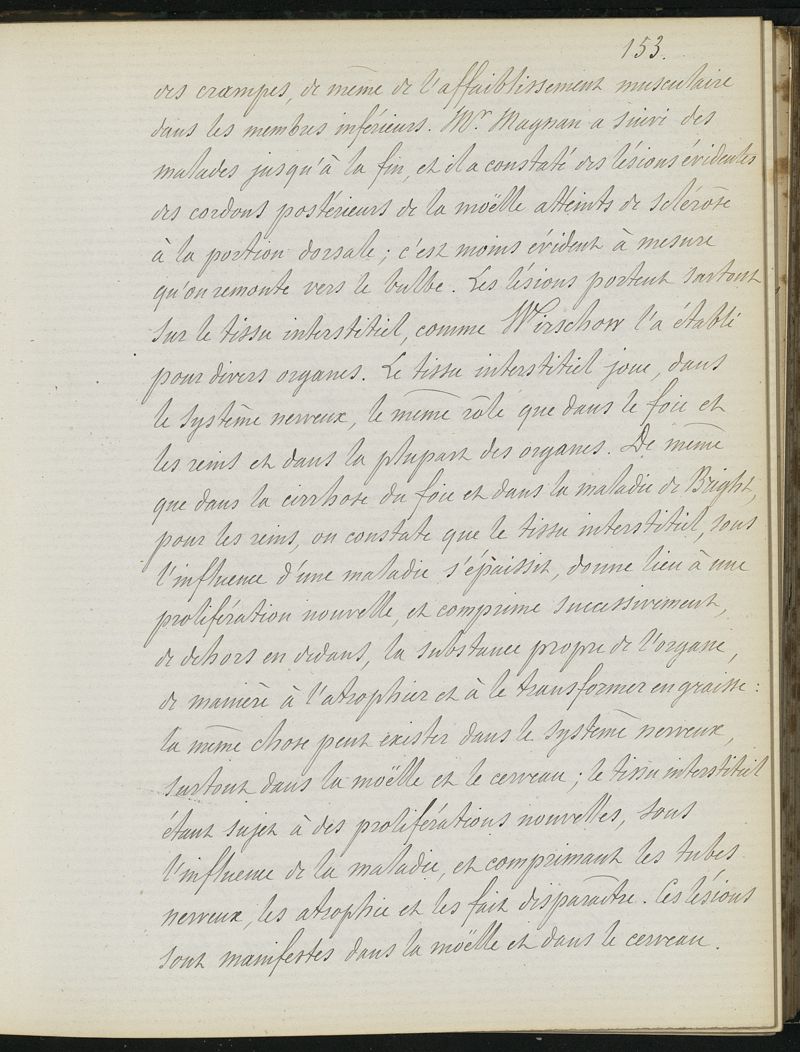 153.
des crampes, de même de l'affaiblissement musculaire
dans les membres inférieurs. Mr Magnan a suivi des
malades jusqu'à la fin, et il a constaté des lésions évidentes
des cordons postérieurs de la moëlle atteints de sclérose
à la portion dorsale ; c'est moins évident à mesure
qu'on remonte vers le bulbe. Les lésions portent surtout
sur le tissu interstitiel, comme Wirschow l'a établi
pour divers organes. Le tissu interstitiel joue, dans
le système nerveux, le même rôle que dans le foie et
les reins et dans la plupart des organes. De même
que dans la cirrhose du foie et dans la maladie de Bright,
pour les reins, on constate que le tissu interstitiel, sous
l'influence d'une maladie s'épaissit, donne lieu à une
prolifération nouvelle, et comprime successivement,
de dehors en dedans, la substance propre de l'organe,
de manière à l'atrophier et à le transformer en graisse :
la même chose peut exister dans le système nerveux,
surtout dans la moëlle et le cerveau ; le tissu interstitiel
étant sujet à des proliférations nouvelles, sous
l'influence de la maladie, et comprimant les tubes
nerveux, les atrophie et les fait disparaître. Ces lésions
sont manifestes dans la moëlle et dans le cerveau.